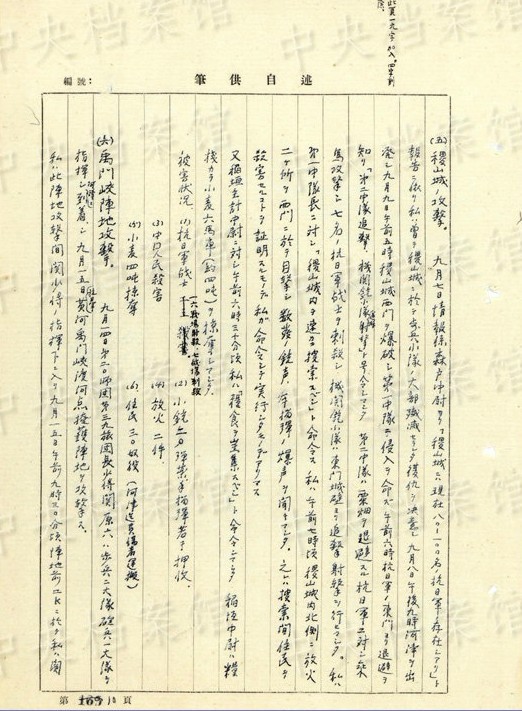 此頁一九字加入。四字削
編號:
筆供自述
(五) 稷山城ノ攻撃。 九月七日情報係森戸中尉カラ「稷山城ニ現在八〇-一〇〇名ノ抗日軍存在シアリ」ト
報告ニ依リ私ハ曽テ稷山城ニ於テ歩兵小隊ノ大部殲滅セシタメ復仇ヲ決意シ九月八日午後九時河津ヲ出
発シ九月九日午前五時稷山城西門ヲ爆破シ第一中隊ニ侵入ヲ命ズ午前六時抗日軍ノ東門ヲ退避ヲ
知リ「第二中隊追撃、機関銃小隊射撃」ト号令シマシタ 第二中隊ハ粟畑ヲ退避スル抗日軍ニ対シ乗
馬攻撃シ七名ノ抗日軍戦士ヲ刺殺シ機関銃小隊ハ東門城壁ヨリ追撃射撃ヲ行ヒマシタ。私ハ
第一中隊長ニ対シ、稷山城内ヲ速ニ捜索スベシト命令ス 私ハ午前七時頃稷山城内北側ニ放火
二ヶ所ヲ西門ニ於テ目撃シ数発ノ銃声、手榴弾ノ爆声ヲ聞キマシタ。之ハ捜索間住民ヲ
殺害セルコトヲ証明スルモノデ私ガ命令シテ実行シタモノデアリマス
又稲垣主計中尉ニ対シ午前六時三十分頃私ハ糧食ヲ蒐集スベシト命令シマシタ 稲垣中尉ハ糧
桟カラ小麦六馬車(約四吨)ヲ掠奪シマシタ。
被害状況 (1) 抗日軍戦士 一六 戦場射殺、七 戦場刺殺 (2) 小銃 二〇 弾薬手榴弾若干押収。
(3) 中国人民殺害 (4) 放火 二件
(5) 小麦四吨掠奪 (6) 住民三〇奴役(河津迄負傷者運搬)
(六) 禹門峽陣地攻撃。 九月一四日第二〇師団第三九旅団長少将関原六ハ歩兵二大隊砲兵一大隊ヲ
指揮シ河津ニ到着シ九月一五日黄河禹門峽渡河点掩護陣地ヲ攻撃ス。
私ハ此陣地攻撃間関少将ノ指揮下ニ入リ九月一五日午前九時三〇分頃陣地前二Kニ於テ私ハ関
第 169 10 頁